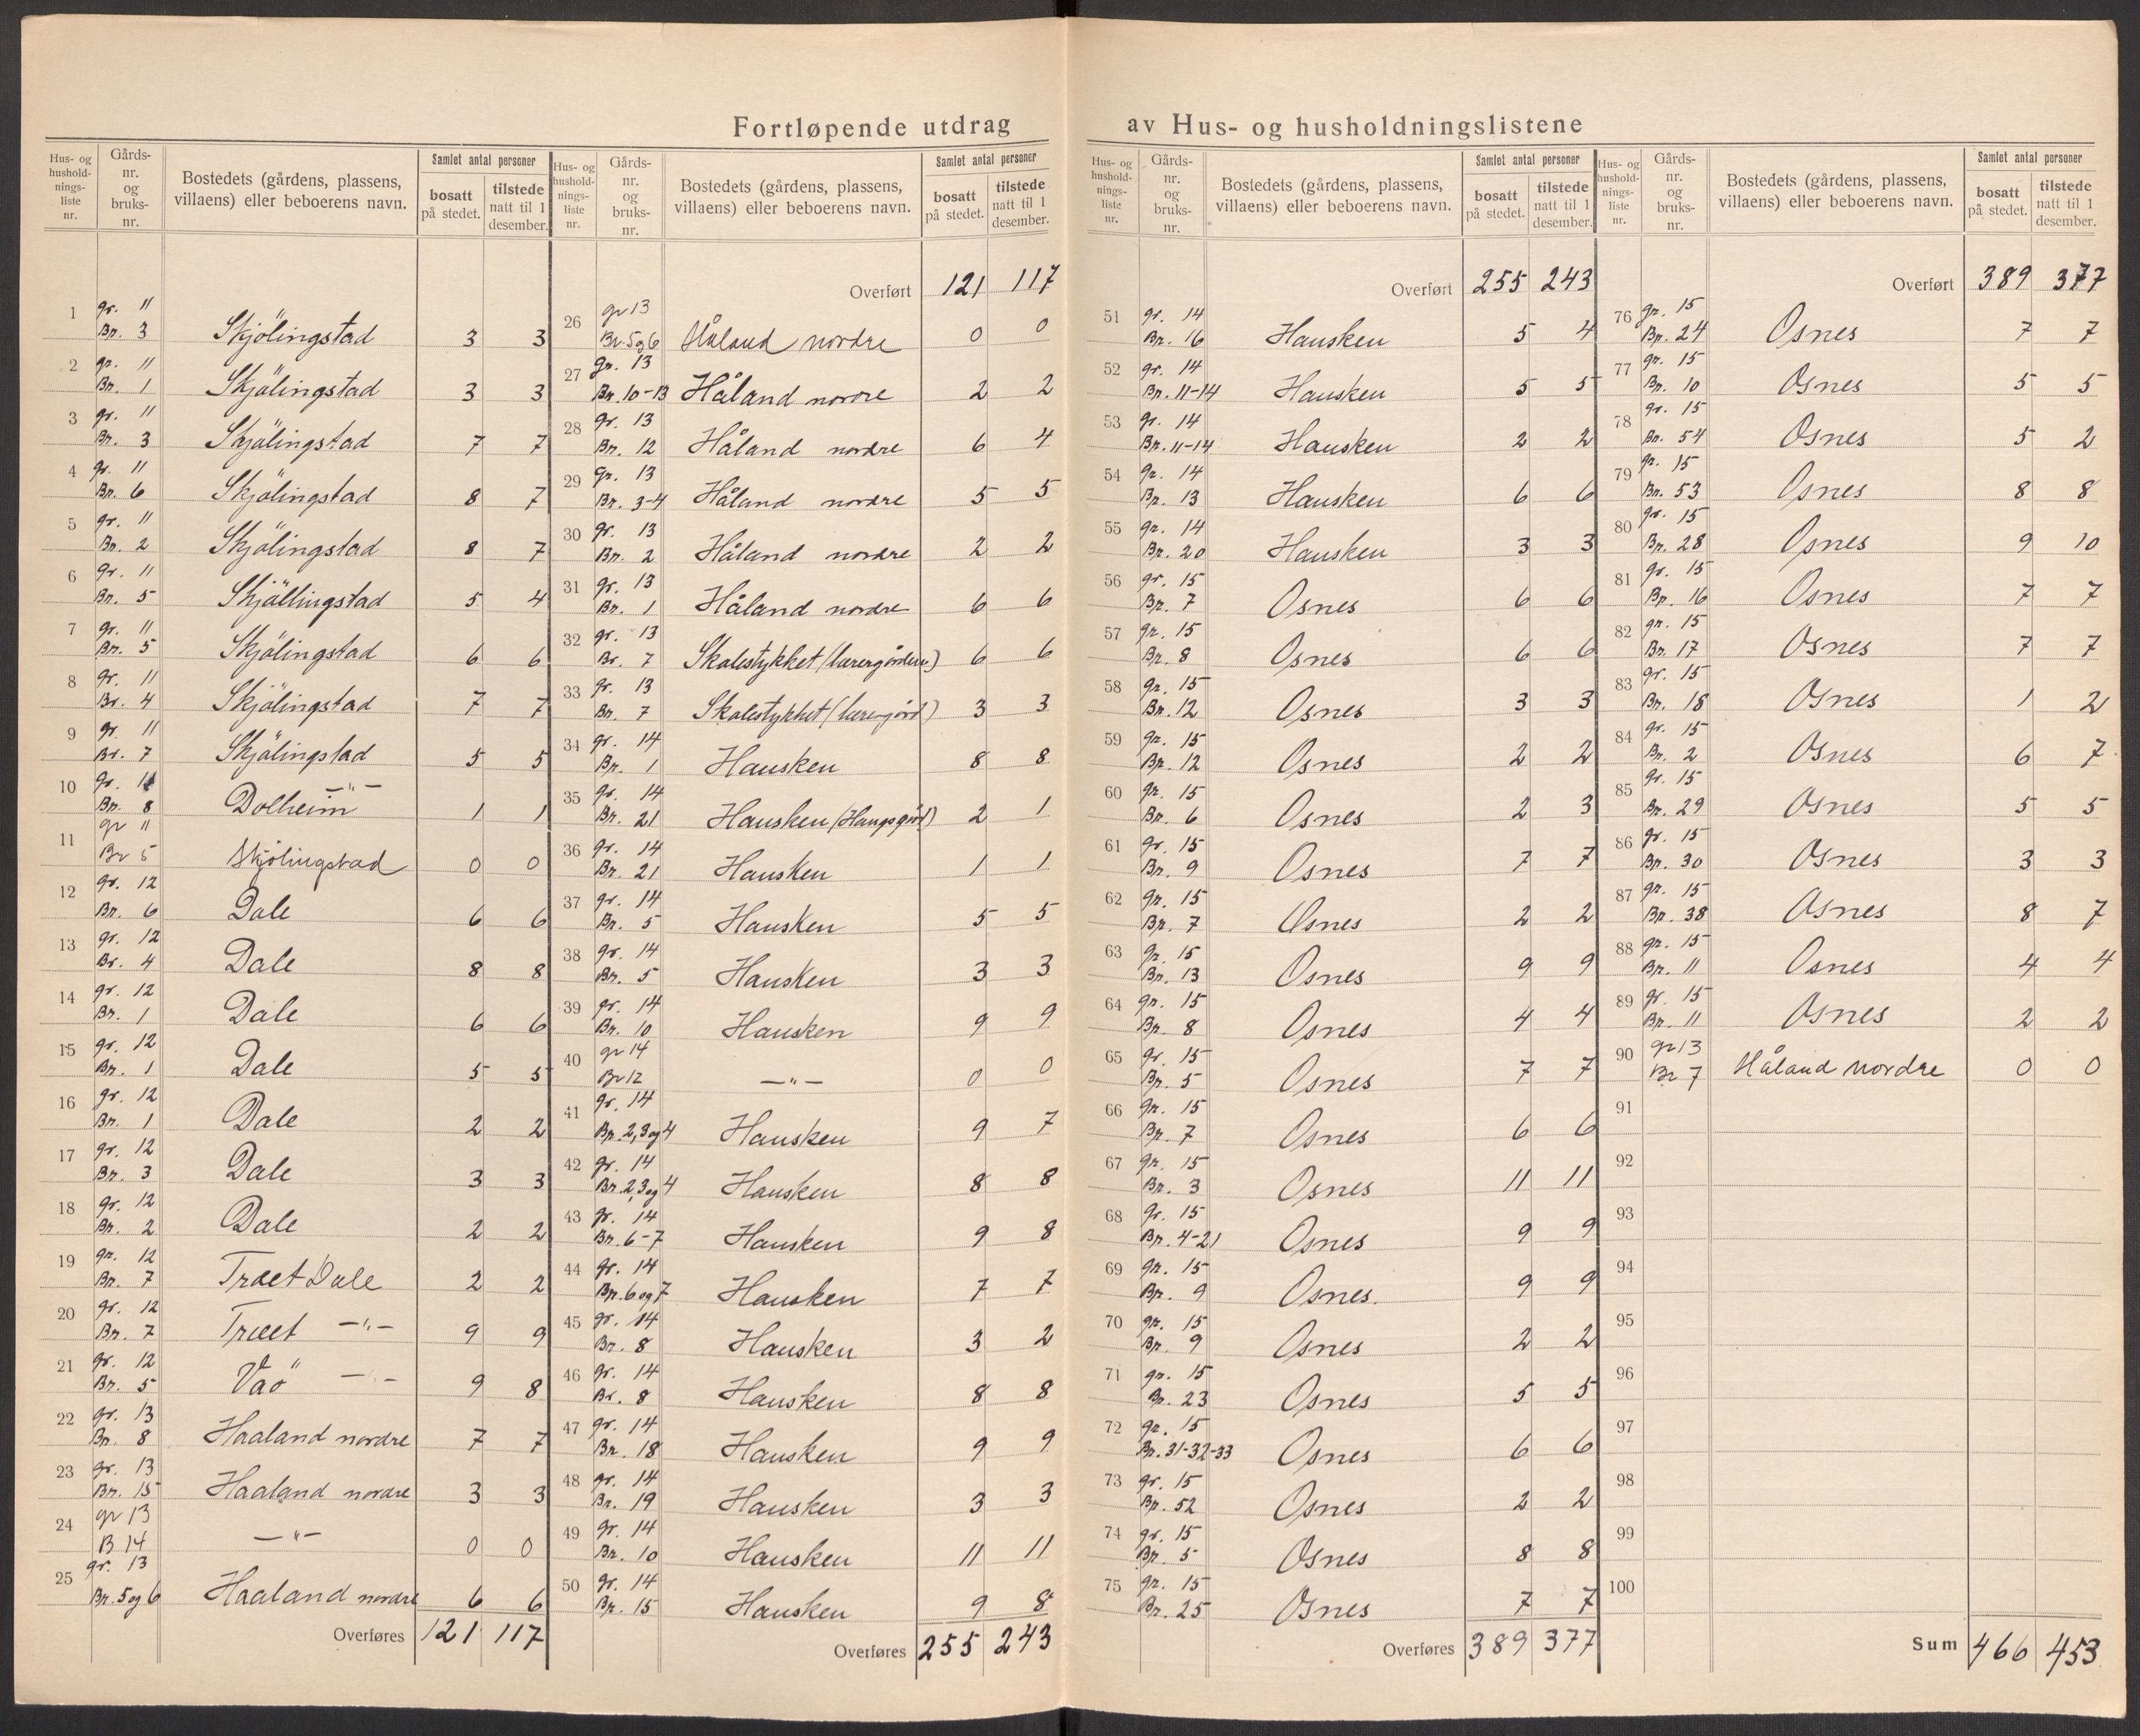 Fortløpende utdrag av Hus- og husholdningslistene
Hus- og husholdnings-liste nr. | Gårds-nr. og bruks-nr. | Bostedets (gårdens, plassens, villaens) eller beboerens navn. | Samlet antal personer | bosatt på stedet. | tilstede natt til 1 desember.
1 gr. 11 Br. 3 Skjölingstad 3 3
2 gr. 11 Br. 1 Skjölingstad 3 3
3 gr. 11 Br. 3 Skjölingstad 7 7
4 gr. 11 Br. 6 Skjölingstad 8 7
5 gr. 11 Br. 2 Skjölingstad 8 7
6 gr. 11 Br. 5 Skjöllingstad 5 4
7 gr. 11 Br. 5 Skjölingstad 6 6
8 gr. 11 Br. 4 Skjölingstad 7 7
9 gr. 11 Br. 7 Skjölingstad 5 5
10 gr. 11 Br. 8 Dolheim —"— 1 1
11 gr 11 Br 5 Skjölingstad 0 0
12 gr. 12 Br. 6 Dale 6 6
13 gr. 12 Br. 4 Dale 8 8
14 gr. 12 Br. 1 Dale 6 6
15 gr. 12 Br. 1 Dale 5 5
16 gr. 12 Br. 1 Dale 2 2
17 gr. 12 Br. 3 Dale 3 3
18 gr. 12 Br. 2 Dale 2 2
19 gr. 12 Br. 7 Træet Dale 2 2
20 gr. 12 Br. 7 Træet —"— 9 9
21 gr. 12 Br. 5 Vaö —"— 9 8
22 gr. 13 Br. 8 Haaland nordre 7 7
23 gr. 13 Br. 15 Haaland nordre 3 3
24 gr 13 B 14 —"— 0 0
25 gr. 13 Br. 5 og 6 Haaland nordre 6 6
Overføres 121 117
Hus- og husholdnings-liste nr. | Gårds-nr. og bruks-nr. | Bostedets (gårdens, plassens, villaens) eller beboerens navn. | Samlet antal personer | bosatt på stedet. | tilstede natt til 1 desember.
Overført 121 117
26 gr 13 Br. 5og6 Håland nordre 0 0
27 gr. 13 Br. 10-13 Håland nordre 2 2
28 gr. 13 Br. 12 Håland nordre 6 4
29 gr. 13 Br. 3-4 Håland nordre 5 5
30 gr. 13 Br. 2 Håland nordre 2 2
31 gr. 13 Br. 1 Håland nordre 6 6
32 gr. 13 Br. 7 Skolestykket (lærergården) 6 6
33 gr. 13 Br. 7 Skolestykket (lærergård) 3 3
34 gr. 14 Br. 1 Hausken 8 8
35 gr. 14 Br. 21 Hausken (Haugsgård) 2 1
36 gr. 14 Br. 21 Hausken 1 1
37 gr. 14 Br. 5 Hausken 5 5
38 gr. 14 Br. 5 Hausken 3 3
39 gr. 14 Br. 10 Hausken 9 9
40 gr 14 Br 12 —"— 0 0
41 gr. 14 Br. 2, 3 og 4 Hausken 9 7
42 gr. 14 Br. 2, 3 og 4 Hausken 8 8
43 gr. 14 Br. 6-7 Hausken 9 8
44 gr. 14 Br. 6 og 7 Hausken 7 7
45 gr. 14 Br. 8 Hausken 3 2
46 gr. 14 Br. 8 Hausken 8 8
47 gr. 14 Br. 18 Hausken 9 9
48 gr. 14 Br. 19 Hausken 3 3
49 gr. 14 Br. 10 Hausken 11 11
50 gr. 14 Br. 15 Hausken 9 8
Overføres 255 243
Hus- og husholdnings-liste nr. | Gårds-nr. og bruks-nr. | Bostedets (gårdens, plassens, villaens) eller beboerens navn. | Samlet antal personer | bosatt på stedet. | tilstede natt til 1 desember.
Overført 255 243
51 gr. 14 Br. 16 Hausken 5 4
52 gr. 14 Br. 11-14 Hausken 5 5
53 gr. 14 Br. 11-14 Hausken 2 2
54 gr. 14 Br. 13 Hausken 6 6
55 gr. 14 Br. 20 Hausken 3 3
56 gr. 15 Br. 7 Osnes 6 6
57 gr. 15 Br. 8 Osnes 6 6
58 gr. 15 Br. 12 Osnes 3 3
59 gr. 15 Br. 12 Osnes 2 2
60 gr. 15 Br. 6 Osnes 2 3
61 gr. 15 Br. 9 Osnes 7 7
62 gr. 15 Br. 7 Osnes 2 2
63 gr. 15 Br. 13 Osnes 9 9
64 gr. 15 Br. 8 Osnes 4 4
65 gr. 15 Br. 5 Osnes 7 7
66 gr. 15 Br. 7 Osnes 6 6
67 gr. 15 Br. 3 Osnes 11 11
68 gr. 15 Br. 4-21 Osnes 9 9
69 gr. 15 Br. 9 Osnes. 9 9
70 gr. 15 Br. 9 Osnes 2 2
71 gr. 15 Br. 23 Osnes 5 5
72 gr. 15 Br. 31-32-33 Osnes 6 6
73 gr. 15 Br. 52 Osnes 2 2
74 gr. 15 Br. 5 Osnes 8 8
75 gr. 15 Br. 25 Osnes 7 7
Overføres 389 377
Hus- og husholdnings-liste nr. | Gårds-nr. og bruks-nr. | Bostedets (gårdens, plassens, villaens) eller beboerens navn. | Samlet antal personer | bosatt på stedet. | tilstede natt til 1 desember.
Overført 389 377
76 gr. 15 Br. 24 Osnes 7 7
77 gr. 15 Br. 10 Osnes 5 5
78 gr. 15 Br. 54 Osnes 5 2
79 gr. 15 Br. 53 Osnes 8 8
80 gr. 15 Br. 28 Osnes 9 10
81 gr. 15 Br. 16 Osnes 7 7
82 gr. 15 Br. 17 Osnes 7 7
83 gr. 15 Br. 18 Osnes 1 2
84 gr. 15 Br. 2 Osnes 6 7
85 gr. 15 Br. 29 Osnes 5 5
86 gr. 15 Br. 30 Osnes 3 3
87 gr. 15 Br. 38 Osnes 8 7
88 gr. 15 Br. 11 Osnes 4 4
89 gr. 15 Br. 11 Osnes 2 2
90 gr 13 Br 7 Håland nordre 0 0
91
92
93
94
95
96
97
98
99
100
Sum 466 453